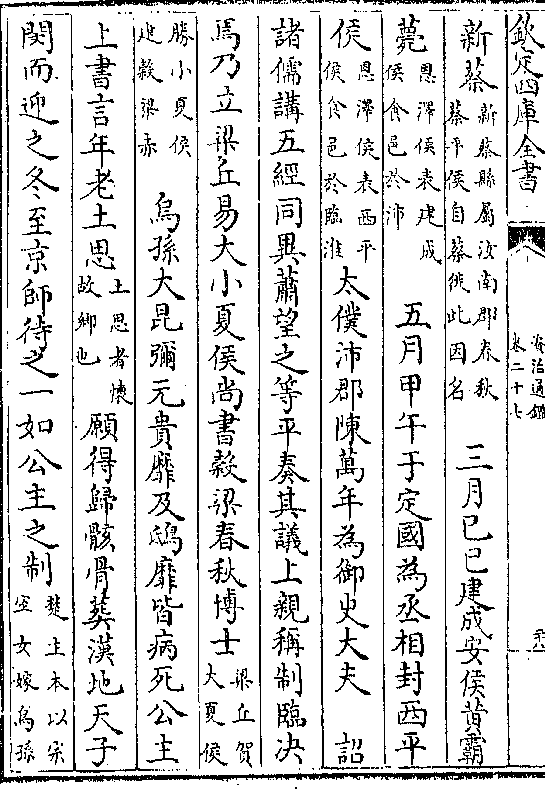 欽定四庫全書 資治通鑑 卷二十七
新蔡 新蔡縣屬汝南郡春秋蔡平侯自蔡徙此因名 三月己巳建成安侯黃霸
薨 恩澤侯表建成侯食邑於沛 五月甲午于定國為丞相封西平
侯 恩澤侯表西平侯食邑於臨淮 太僕沛郡陳萬年為御史大夫 詔
諸儒講五經同異蕭望之等平奏其議上親稱制臨决
焉乃立梁丘易大小夏侯尚書穀梁春秋博士 梁丘賀大夏侯
勝小夏侯建穀梁赤 烏孫大昆彌元貴靡及鴟靡皆病死公主
上書言年老土思 土思者懷故鄉也 願得歸骸骨葬漢地天子
閔而迎之冬至京師待之一如公主之制 楚主本以宗室女嫁烏孫